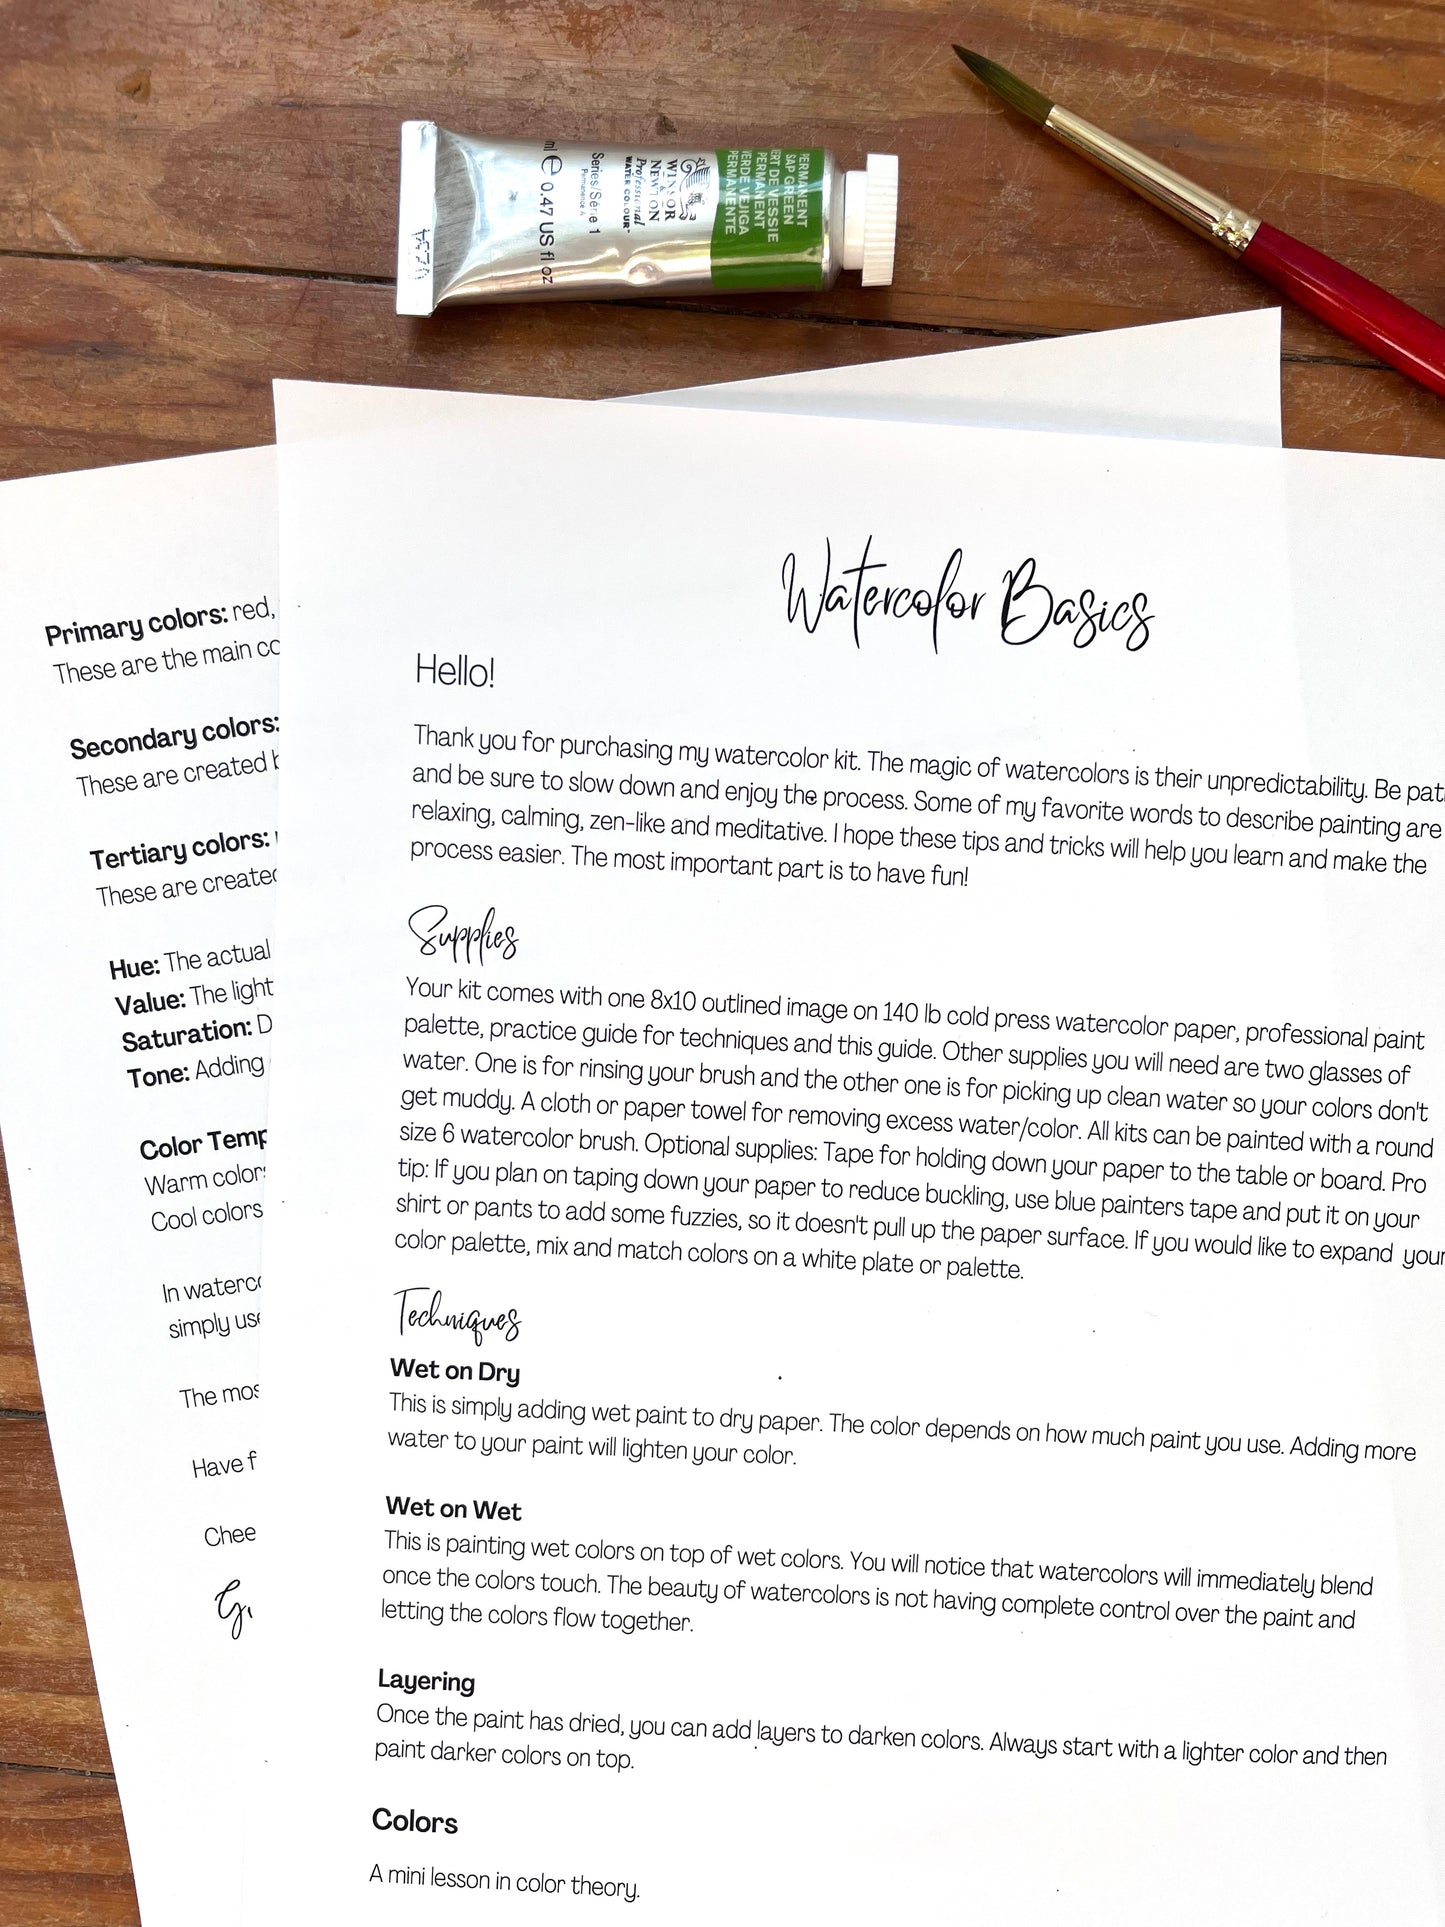 PERMANENT
SAP GREEN
VERT DE VESSIE
PERMANENT
VERDE VEJIGA
PERMANENTE
WINSOR
&
NEWTON
Professional
WATER COLOUR
Series/Série 1
Permanence A
ml e 0.47 US fl oz
Watercolor Basics
Hello!
Thank you for purchasing my watercolor kit. The magic of watercolors is their unpredictability. Be pati
and be sure to slow down and enjoy the process. Some of my favorite words to describe painting are
relaxing, calming, zen-like and meditative. I hope these tips and tricks will help you learn and make the
process easier. The most important part is to have fun!
Supplies
Your kit comes with one 8x10 outlined image on 140 lb cold press watercolor paper, professional paint
palette, practice guide for techniques and this guide. Other supplies you will need are two glasses of
water. One is for rinsing your brush and the other one is for picking up clean water so your colors don't
get muddy. A cloth or paper towel for removing excess water/color. All kits can be painted with a round
size 6 watercolor brush. Optional supplies: Tape for holding down your paper to the table or board. Pro
tip: If you plan on taping down your paper to reduce buckling, use blue painters tape and put it on your
shirt or pants to add some fuzzies, so it doesn't pull up the paper surface. If you would like to expand your
color palette, mix and match colors on a white plate or palette.
Techniques
Wet on Dry
This is simply adding wet paint to dry paper. The color depends on how much paint you use. Adding more
water to your paint will lighten your color.
Wet on Wet
This is painting wet colors on top of wet colors. You will notice that watercolors will immediately blend
once the colors touch. The beauty of watercolors is not having complete control over the paint and
letting the colors flow together.
Layering
Once the paint has dried, you can add layers to darken colors. Always start with a lighter color and then
paint darker colors on top.
Colors
A mini lesson in color theory.
Primary colors: red,
These are the main co
Secondary colors:
These are created b
Tertiary colors:
These are created
Hue: The actual
Value: The light
Saturation: D
Tone: Adding
Color Temp
Warm colors
Cool colors
In waterco
simply use
The mos
Have f
Chee